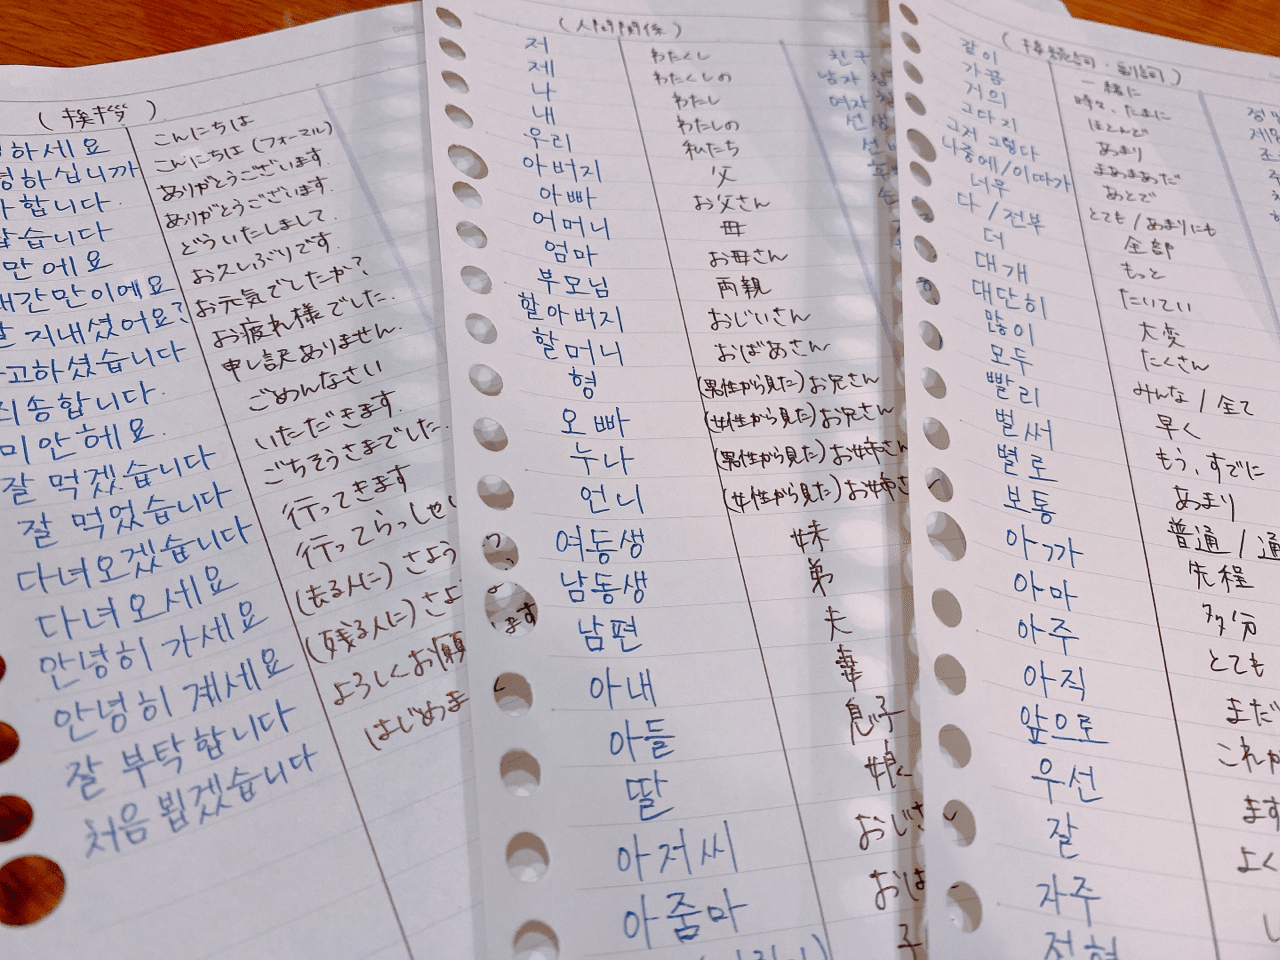 (挨拶)
하세요 こんにちは
하십니까 こんにちは(フォーマル)
합니다. ありがとうございます.
습니다 ありがとうございます.
만에요 どういたしまして.
간만이에요 お久しぶりです.
지내셨어요? お元気でしたか?
고하셨습니다 お疲れ様でした.
죄송합니다. 申し訳ありません.
미안해요. ごめんなさい
잘 먹겠습니다 いただきます.
잘 먹었습니다 ごちそうさまでした.
다녀오겠습니다 行ってきます
다녀오세요 行ってらっしゃい
안녕히 가세요 (去る人に)さよう
안녕히 계세요 (残る人に)さよ
잘 부탁합니다 よろしくお願
처음 뵙겠습니다 はじめま
(人間関係)
저 わたくし 친구
제 わたくしの 남자
나 わたし 여자
내 わたしの
우리 私たち
아버지 父
아빠 お父さん
어머니 母
엄마 お母さん
부모님 両親
할아버지 おじいさん
할머니 おばあさん
형 (男性から見た)お兄さん
오빠 (女性から見た)お兄さん
누나 (男性から見た)お姉さん
언니 (女性から見た)お姉さ
여동생 妹
남동생 弟
남편 夫
아내 妻
아들 息子
딸 娘
아저씨 おじさ
아줌마 おば
(接続詞・副詞)
같이 一緒に
가끔 時々、たまに
거의 ほとんど
그다지 あまり
그저 그렇다 まあまあだ
나중에/이따가 あとで
너무 とても/あまりにも
다/전부 全部
더 もっと
대개 たいてい
대단히 大変
많이 たくさん
모두 みんな/全て
빨리 早く
벌써 もう、すでに
별로 あまり
보통 普通/通
아까 先程
아마 多分
아주 とても
아직 まだ
앞으로 これか
우선 まず
잘 よく
자주 し
전혀